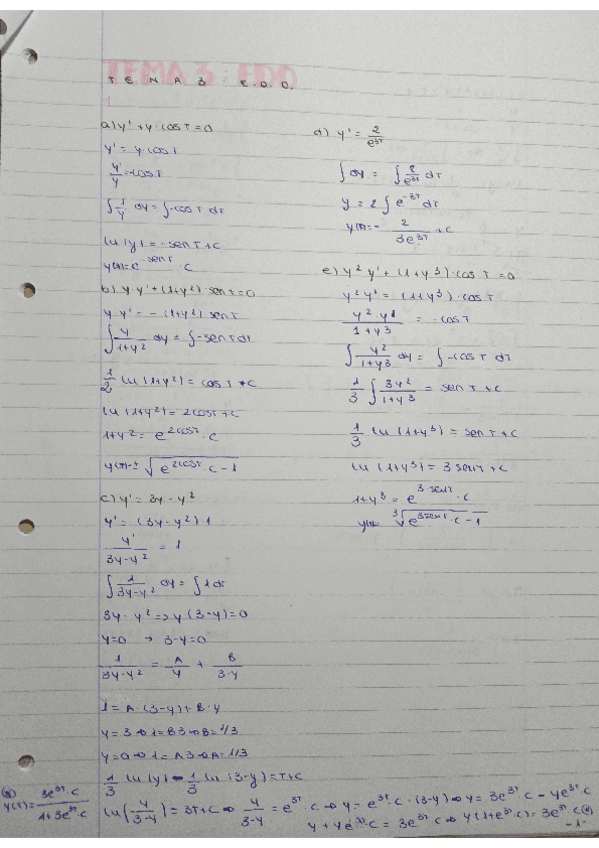 TEMA 3: EDO
TEMA 3 E.D.O.
1
a) y' + y·cos T = 0
y' = y·cos T
y'/y = -cos T
∫ 1/y dy = ∫ -cos T dT
ln|y| = -sen T + C
y(T) = e^(-sen T) · C
b) y y' + (1+y²) sen T = 0
y·y' = -(1+y²) sen T
∫ y/(1+y²) dy = ∫ -sen T dT
1/2 ln(1+y²) = cos T + C
ln(1+y²) = 2cos T + C
1+y² = e^(2cos T) · C
y(T) = ± √(e^(2cos T) · C - 1)
c) y' = 3y - y²
y' = (3y - y²) 1
y'/(3y-y²) = 1
∫ 1/(3y-y²) dy = ∫ 1 dT
3y - y² => y (3-y) = 0
y=0 → 3-y=0
1/(3y-y²) = A/y + B/(3-y)
1 = A·(3-y) + B·y
y=3 ⇒ 1=B3 ⇒ B=1/3
y=0 ⇒ 1=A3 ⇒ A=1/3
1/3 ln|y| - 1/3 ln(3-y) = T+C
ln(y/(3-y)) = 3T+C ⇒ y/(3-y) = e^(3T)·C ⇒ y = e^(3T)·C·(3-y) ⇒ y = 3e^(3T)·C - ye^(3T)·C
y + ye^(3T)·C = 3e^(3T)·C ⇒ y(1+e^(3T)·C) = 3e^(3T)·C (*)
(*) y(T) = 3e^(3T)·C/(1+3e^(3T)·C)
-1-
d) y' = 2/e^(3T)
∫ dy = ∫ 2/e^(3T) dT
y = 2 ∫ e^(-3T) dT
y(T) = - 2/(3e^(3T)) + C
e) y² y' + (1+y³)·cos T = 0
y² y' = (1+y³)·cos T
y²·y'/(1+y³) = -cos T
∫ y²/(1+y³) dy = ∫ -cos T dT
1/3 ∫ 3y²/(1+y³) = sen T + C
1/3 ln(1+y³) = sen T + C
ln(1+y³) = 3 sen T + C
1+y³ = e^(3·sen T) · C
y(T) = ∛(e^(3sen T) · C - 1)